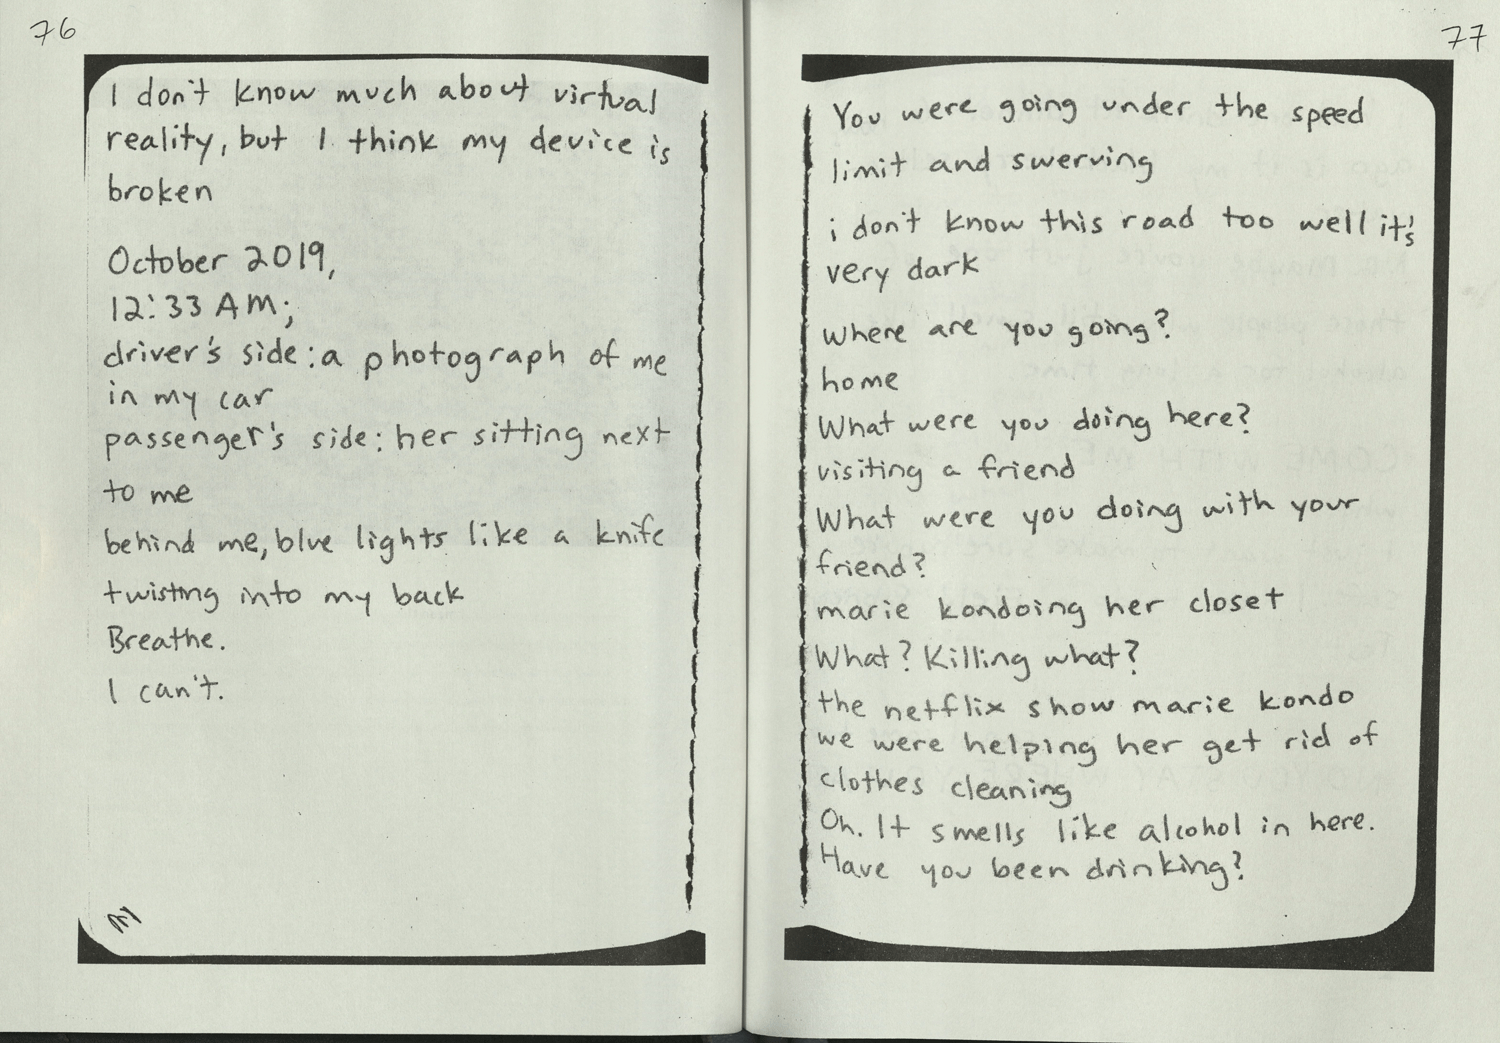 76
I don't know much about virtual
reality, but I think my device is
broken
October 2019,
12:33 AM;
driver's side: a photograph of me
in my car
passenger's side: her sitting next
to me
behind me, blue lights like a knife
twisting into my back
Breathe.
I can't.
77
You were going under the speed
limit and swerving
i don't know this road too well it's
very dark
Where are you going?
home
What were you doing here?
visiting a friend
What were you doing with your
friend?
marie kondoing her closet
What? Killing what?
the netflix show marie kondo
we were helping her get rid of
clothes cleaning
Oh. It smells like alcohol in here.
Have you been drinking?